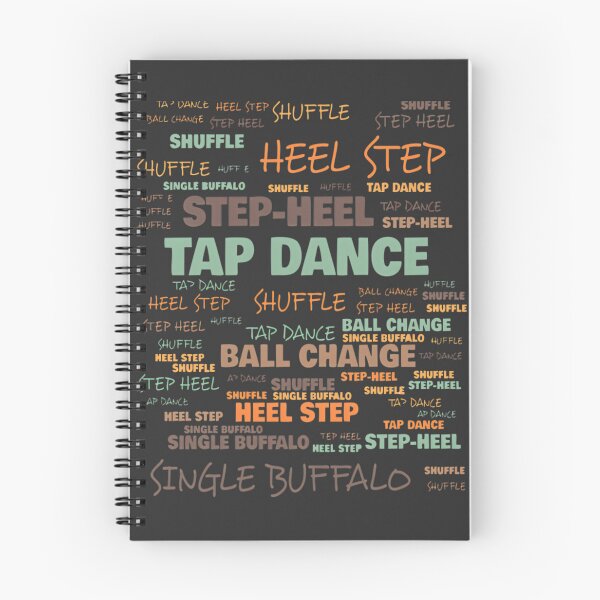 TAP DANCE HEEL STEP SHUFFLE SHUFFLE
BALL CHANGE STEP HEEL STEP HEEL
SHUFFLE HEEL STEP
SHUFFLE HUFF E
SINGLE BUFFALO SHUFFLE HUFFLE TAP DANCE
HUFF E STEP-HEEL TAP DANCE
HUFFLE
HUFFLE STEP-HEEL
TAP DANCE
TAP DANCE HUFFLE
HEEL STEP SHUFFLE BALL CHANGE SHUFFLE
STEP HEEL SHUFFLE
STEP HEEL HUFFLE TAP DANCE BALL CHANGE
SHUFFLE SINGLE BUFFALO HUFFLE
HEEL STEP BALL CHANGE TAP DANCE
SHUFFLE STEP-HEEL SHUFFLE
STEP HEEL AP DANCE SHUFFLE SHUFFLE STEP-HEEL
AP DANCE SHUFFLE SINGLE BUFFALO TAP DANCE
HEEL STEP HEEL STEP AP DANCE
SINGLE BUFFALO TAP DANCE
SINGLE BUFFALO TEP HEEL STEP-HEEL
HEEL STEP
SINGLE BUFFALO SHUFFLE
SHUFFLE